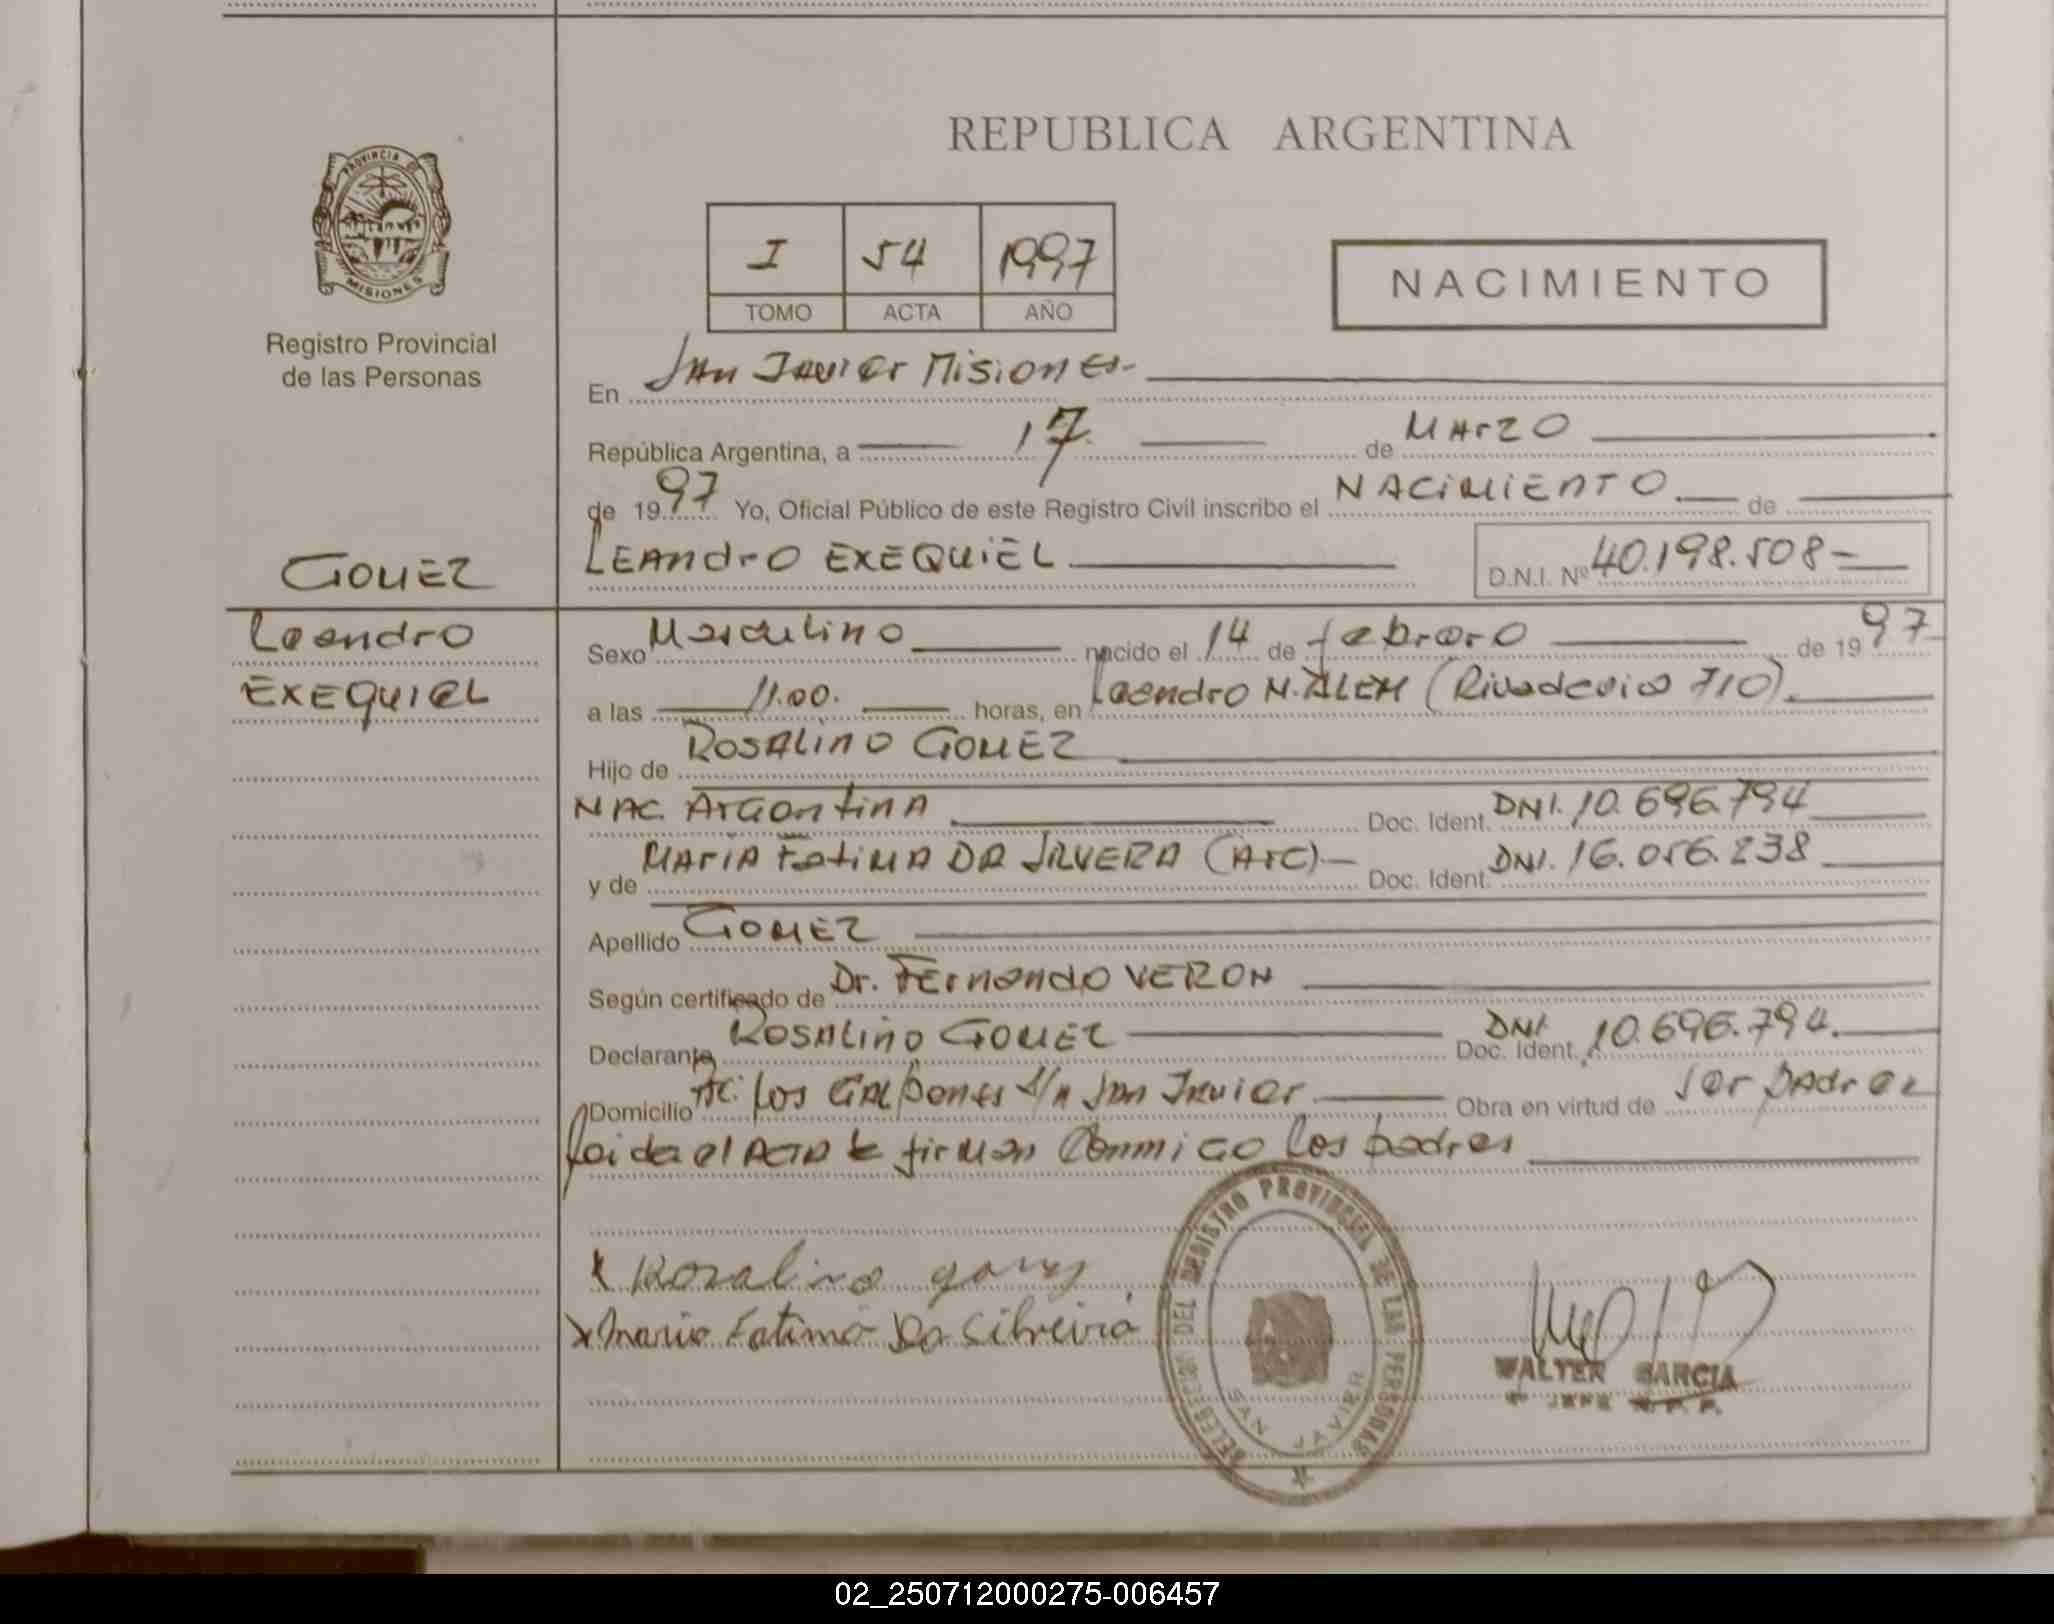 PROVINCIA DE
MISIONES
Registro Provincial
de las Personas
GOMEZ
Leandro
EXEQUIEL
REPUBLICA ARGENTINA
I 54 1997
TOMO ACTA AÑO
NACIMIENTO
En San Javier Misiones.
República Argentina, a 17 de Marzo
de 1997 Yo, Oficial Público de este Registro Civil inscribo el NACIMIENTO de
LEANDRO EXEQUIEL D.N.I. Nº 40.198.508
Sexo Masculino nacido el 14 de febrero de 1997
a las 11.00. horas, en Leandro N. ALEM (Rivadavia 710).
Hijo de ROSALINO GOMEZ
NAC. Argentina Doc. Ident. DNI. 10.696.794
y de MARIA FATIMA DA SILVERA (ARG) Doc. Ident. DNI. 16.056.238
Apellido GOMEZ
Según certificado de Dr. Fernando VERON
Declarante ROSALINO GOMEZ Doc. Ident. DNI. 10.696.794.
Domicilio Los GALPONES S/n San Javier Obra en virtud de ser padre
leida el ACTA firman Conmigo los padres
x Rozalino gomes
x Maria Fatima Da Silveira
DELEGACION DEL REGISTRO PROVINCIAL DE LAS PERSONAS
SAN JAVIER
WALTER GARCIA
JEFE R. P. P.
02_250712000275-006457